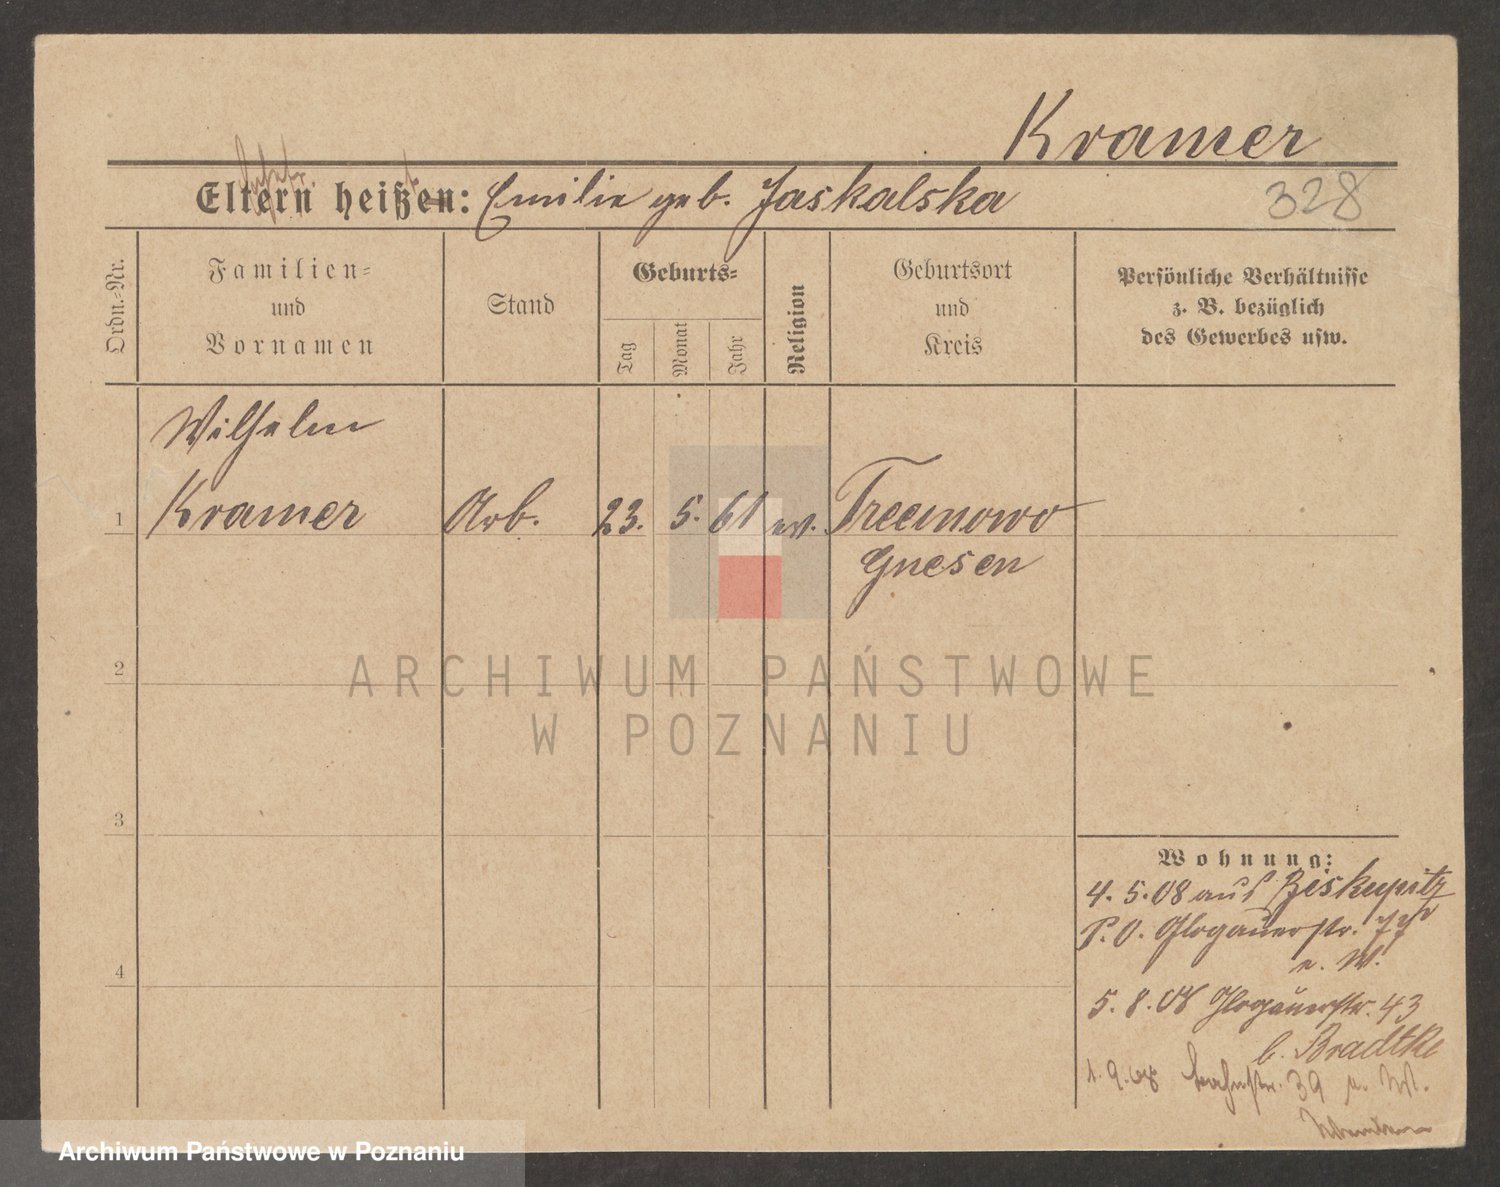 Kramer
Eltern heißen: Emilie geb. Jaskalska
328
Ordn.-Nr.
Familien-
und
Vornamen
Stand
Geburts-
Tag
Monat
Jahr
Religion
Geburtsort
und
Kreis
Persönliche Verhältnisse
z. B. bezüglich
des Gewerbes usw.
Wilhelm
1 Kramer Arb. 23. 5. 61 ev. Treemowo
Gnesen
2
ARCHIWUM PAŃSTWOWE
W POZNANIU
3
Wohnung:
4. 5. 08 aus Biskupitz
P. O. Glogauerstr.
e. W.
4
5. 8. 08 Glogauerstr. 43
b. Bradtke
1. 9. 08 39 W.
Archiwum Państwowe w Poznaniu